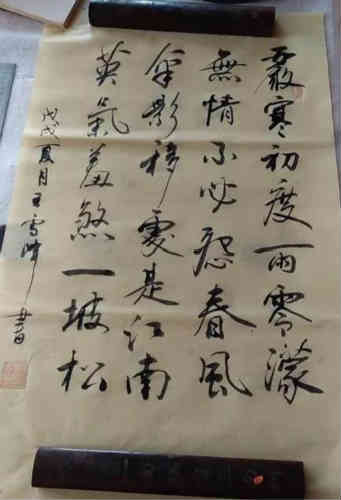 嚴寒初度雨零濛
無情不必怨春風
傘影移處是江南
英氣羞煞一坡松
戊戌夏月王雪峰書